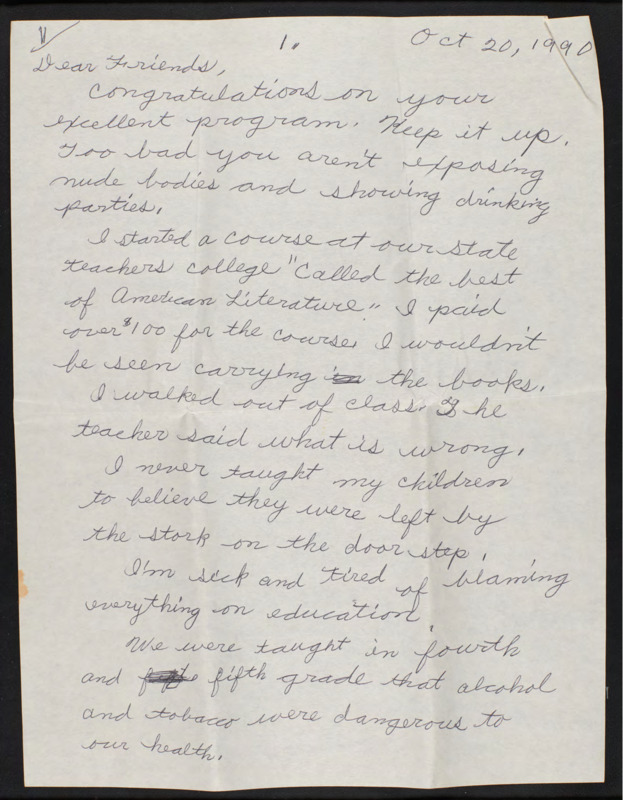 V
1.
Oct 20, 1990
Dear Friends,
Congratulations on your
excellent program. Keep it up.
Too bad you aren't exposing
nude bodies and showing drinking
parties.
I started a course at our state
teachers college "Called the best
of American Literature." I paid
over $100 for the course. I wouldn't
be seen carrying the books.
I walked out of class. The
teacher said what is wrong.
I never taught my children
to believe they were left by
the stork on the door step.
I'm sick and tired of blaming
everything on education.
We were taught in fourth
and fifth grade that alcohol
and tobacco were dangerous to
our health.